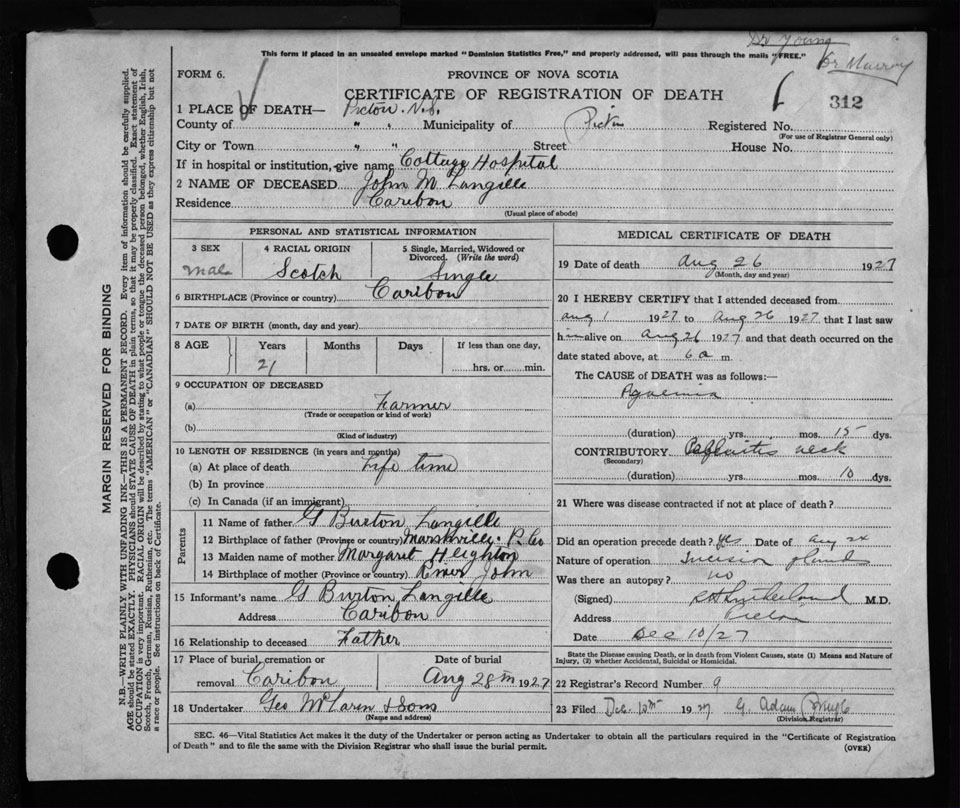 Dr Young
Dr Murray
This form if placed in an unsealed envelope marked "Dominion Statistics Free," and properly addressed, will pass through the mails "FREE."
FORM 6.
PROVINCE OF NOVA SCOTIA
CERTIFICATE OF REGISTRATION OF DEATH
312
1 PLACE OF DEATH— Pictou. N.S.
County of " " Municipality of Pictou Registered No.
(For use of Registrar General only)
City or Town " " Street House No.
If in hospital or institution, give name Cottage Hospital
2 NAME OF DECEASED John M Langille
Residence Caribou
(Usual place of abode)
PERSONAL AND STATISTICAL INFORMATION
3 SEX 4 RACIAL ORIGIN 5 Single, Married, Widowed or Divorced. (Write the word)
male Scotch Single
6 BIRTHPLACE (Province or country) Caribou
7 DATE OF BIRTH (month, day and year)
8 AGE Years Months Days If less than one day,
21 hrs. or min.
9 OCCUPATION OF DECEASED
(a) Farmer
(Trade or occupation or kind of work)
(b)
(Kind of industry)
10 LENGTH OF RESIDENCE (in years and months)
(a) At place of death Life time
(b) In province
(c) In Canada (if an immigrant)
Parents
11 Name of father G Burton Langille
12 Birthplace of father (Province or country) Marshville. P. Co
13 Maiden name of mother Margaret Heighton
14 Birthplace of mother (Province or country) River John
15 Informant's name G Burton Langille
Address Caribou
16 Relationship to deceased Father
17 Place of burial, cremation or Date of burial
removal Caribou Aug 28th 1927
18 Undertaker Geo McLaren & Sons
(Name and address)
MEDICAL CERTIFICATE OF DEATH
19 Date of death Aug 26 1927
(Month, day and year)
20 I HEREBY CERTIFY that I attended deceased from
Aug 1 1927 to Aug 26 1927 that I last saw
him alive on Aug 26 1927 and that death occurred on the
date stated above, at 6 a m.
The CAUSE of DEATH was as follows:—
Pyaemia
(duration) yrs. mos. 15 dys.
CONTRIBUTORY neck
(Secondary)
(duration) yrs. mos. 10 dys.
21 Where was disease contracted if not at place of death?
Did an operation precede death? Yes Date of Aug 24
Nature of operation Incision gland
Was there an autopsy? no
(Signed) Sutherland M.D.
Address Pictou
Date Dec 10/27
State the Disease causing Death, or in death from Violent Causes, state (1) Means and Nature of
Injury, (2) whether Accidental, Suicidal or Homicidal.
22 Registrar's Record Number 9
23 Filed Dec. 10th 1927 G. Adam
(Division Registrar)
SEC. 46—Vital Statistics Act makes it the duty of the Undertaker or person acting as Undertaker to obtain all the particulars required in the "Certificate of Registration
of Death" and to file the same with the Division Registrar who shall issue the burial permit.
(OVER)
MARGIN RESERVED FOR BINDING
N.B.—WRITE PLAINLY WITH UNFADING INK—THIS IS A PERMANENT RECORD. Every item of information should be carefully supplied.
AGE should be stated EXACTLY. PHYSICIANS should STATE CAUSE OF DEATH in plain terms, so that it may be properly classified. Exact statement of
OCCUPATION is very important. RACIAL ORIGIN will be described by stating to what people or tongue the deceased person belonged, whether English, Irish,
Scotch, French, German, Russian, Ruthenian, etc. The terms "AMERICAN" or "CANADIAN" SHOULD NOT BE USED as they express citizenship but not
a race or people. See instructions on back of Certificate.